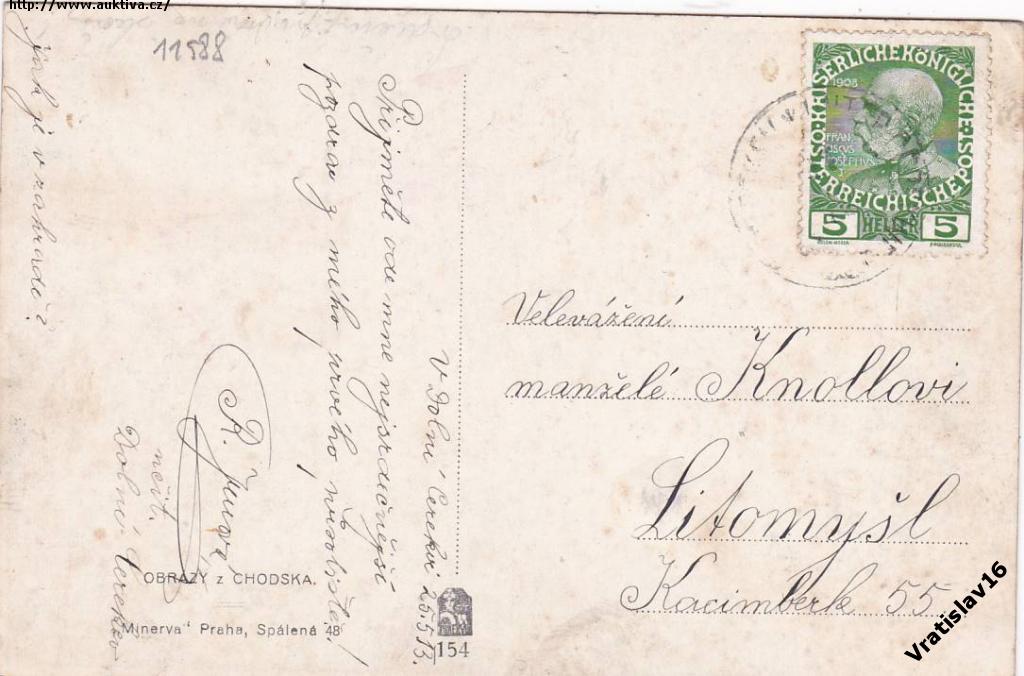 http://www.auktiva.cz/
11588
V Dolní Cerekvi 25 5 13.
Přijměte ode mne nejsrdečnější
pozdrav z mého prvého
Jak je v zahradě?
učit.
Dolní Cerekev
OBRAZY z CHODSKA.
"Minerva" Praha, Spálená 48
154
ÖSTERREICHISCHE POST KAISERLICHE KÖNIGLICHE
1908
FRAN
CISCVS
IOSEPHVS
5 HELLER 5
Velevážení
manželé Knollovi
Litomyšl
Kacimberk 55.
Vratislav16